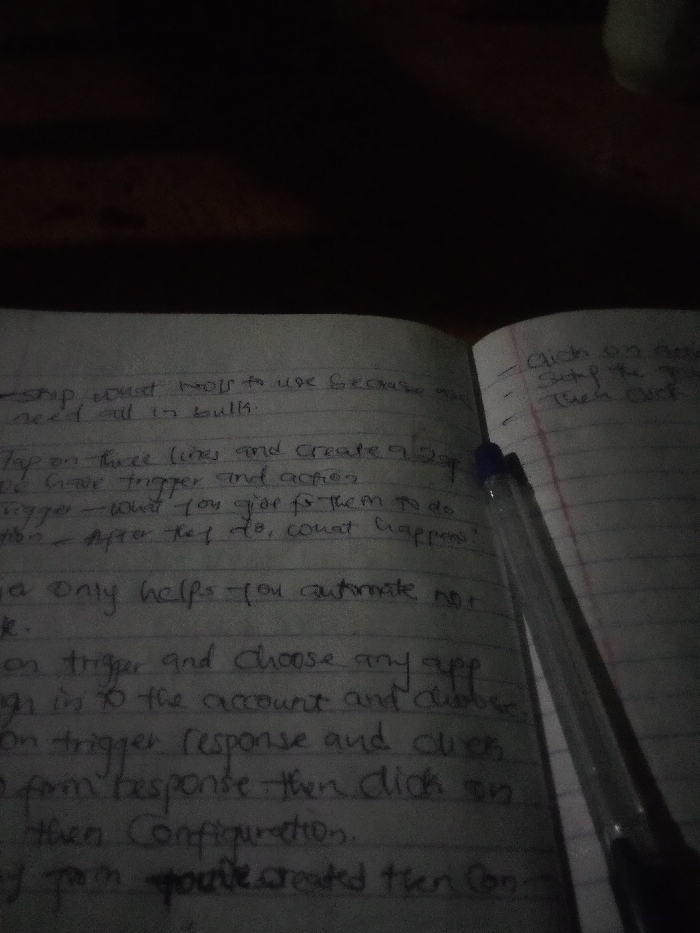 - skip what tools to use because
need all in bulk.
Tap on three lines and create a zap
have trigger and action
rigger - what you give for them to do
tion - After they do, what happens?
only helps you automate not
on trigger and choose any app
gn in to the account and choose
on trigger response and click
form response then click on
then Configuration.
form you've created then Con-
- click on
- Setup the
- Then click